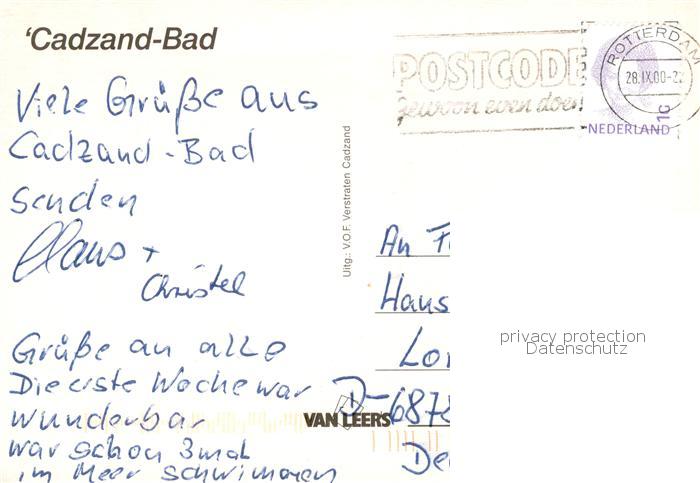 'Cadzand-Bad
Viele Grüße aus
Cadzand-Bad
senden
Klaus +
Christel
Grüße an alle
Die erste Woche war
wunderbar
war schon 3mal
im Meer schwimmen
Uitg.: V.O.F. Verstraten Cadzand
VAN LEER'S
POSTCODE
gewoon even doen
ROTTERDAM
28.IX.00-2
NEDERLAND
An
Hans
Lo
D-687
De
privacy protection
Datenschutz